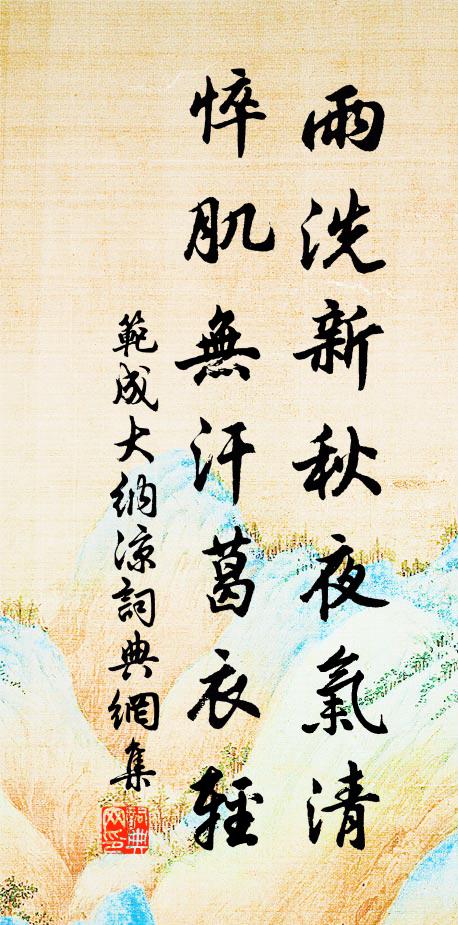 雨洗新秋夜氣清
悴肌無汗葛衣輕
範成大納涼詞典網集
詞典網印